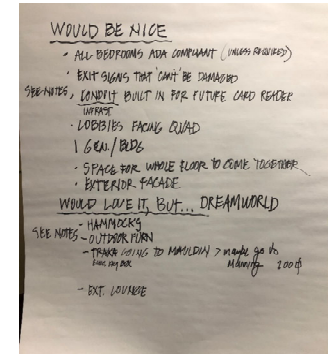 WOULD BE NICE
· ALL BEDROOMS ADA COMPLIANT (UNLESS REQUIRED)
· EXIT SIGNS THAT "CAN'T" BE DAMAGED
SEE NOTES · CONDUIT BUILT IN FOR FUTURE CARD READER
INFRAST
· LOBBIES FACING QUAD
1 GEN./BLDG
· SPACE FOR WHOLE FLOOR TO COME TOGETHER
· EXTERIOR FACADE
WOULD LOVE IT, BUT... DREAMWORLD
- HAMMOCKS
SEE NOTES - OUTDOOR FURN
- TRAKA GOING TO MAULDIN > maybe go to
KEY BOX Manning 200
- EXT. LOUNGE